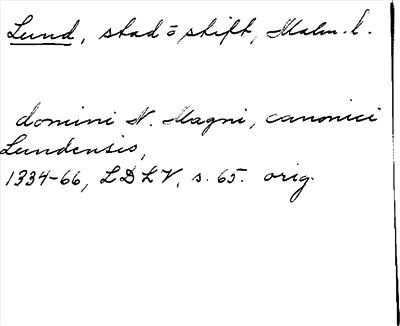 Lund, stad o stift, Malm. l.
domini N. Magni, canonici
Lundensis,
1334-66, LDLV, s. 65. orig.